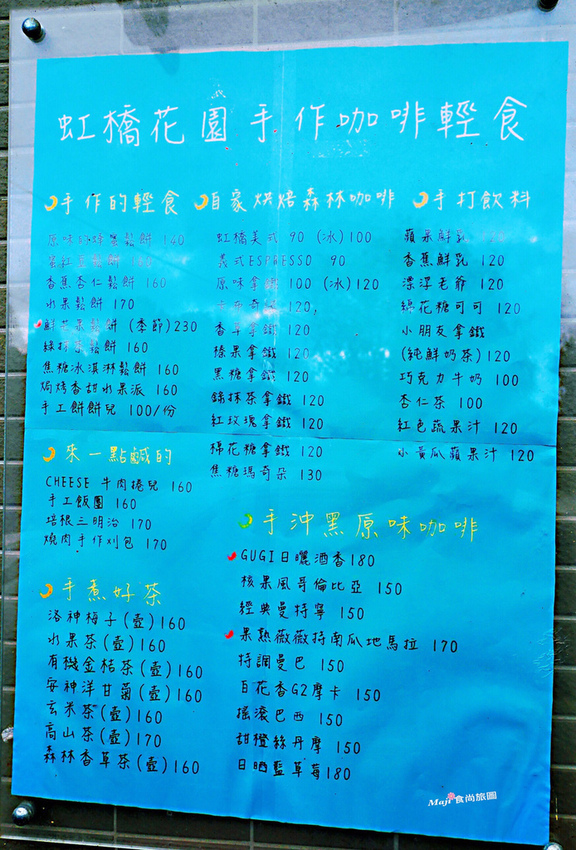 虹橋花園手作咖啡輕食
手作的輕食
原味的蜂蜜鬆餅 140
鬆餅 160
香蕉杏仁鬆餅 160
水果鬆餅 170
鮮芒果鬆餅 (季節)230
綠抹茶鬆餅 160
焦糖冰淇淋鬆餅 160
焗烤香甜水果派 160
手工餅餅兒 100/份
來一點鹹的
CHEESE 牛肉捲兒 160
手工飯團 160
培根三明治 170
燒肉手作刈包 170
手煮好茶
洛神梅子(壺)160
水果茶(壺)160
有機金桔茶(壺)160
安神洋甘菊(壺)160
玄米茶(壺)160
高山茶(壺)170
森林香草茶(壺)160
自家烘焙森林咖啡
虹橋美式 90 (冰)100
義式ESPRESSO 90
原味拿鐵 100 (冰)120
卡布奇諾 120
香草拿鐵 120
榛果拿鐵 120
黑糖拿鐵 120
綠抹茶拿鐵 120
紅玫瑰拿鐵 120
棉花糖拿鐵 120
焦糖瑪奇朵 130
手打飲料
蘋果鮮乳
香蕉鮮乳 120
漂浮老爺 120
綿花糖可可 120
小朋友拿鐵
(純鮮奶茶)120
巧克力牛奶 100
杏仁茶 100
紅色蔬果汁 120
小黃瓜蘋果汁 120
手沖黑原味咖啡
GUGI日曬酒香180
核果風哥倫比亞 150
經典曼特寧 150
果熱薇薇特南瓜地馬拉 170
特調曼巴 150
百花香G2摩卡 150
搖滾巴西 150
甜橙絲丹摩 150
日晒藍草莓180
Maji食尚旅圖